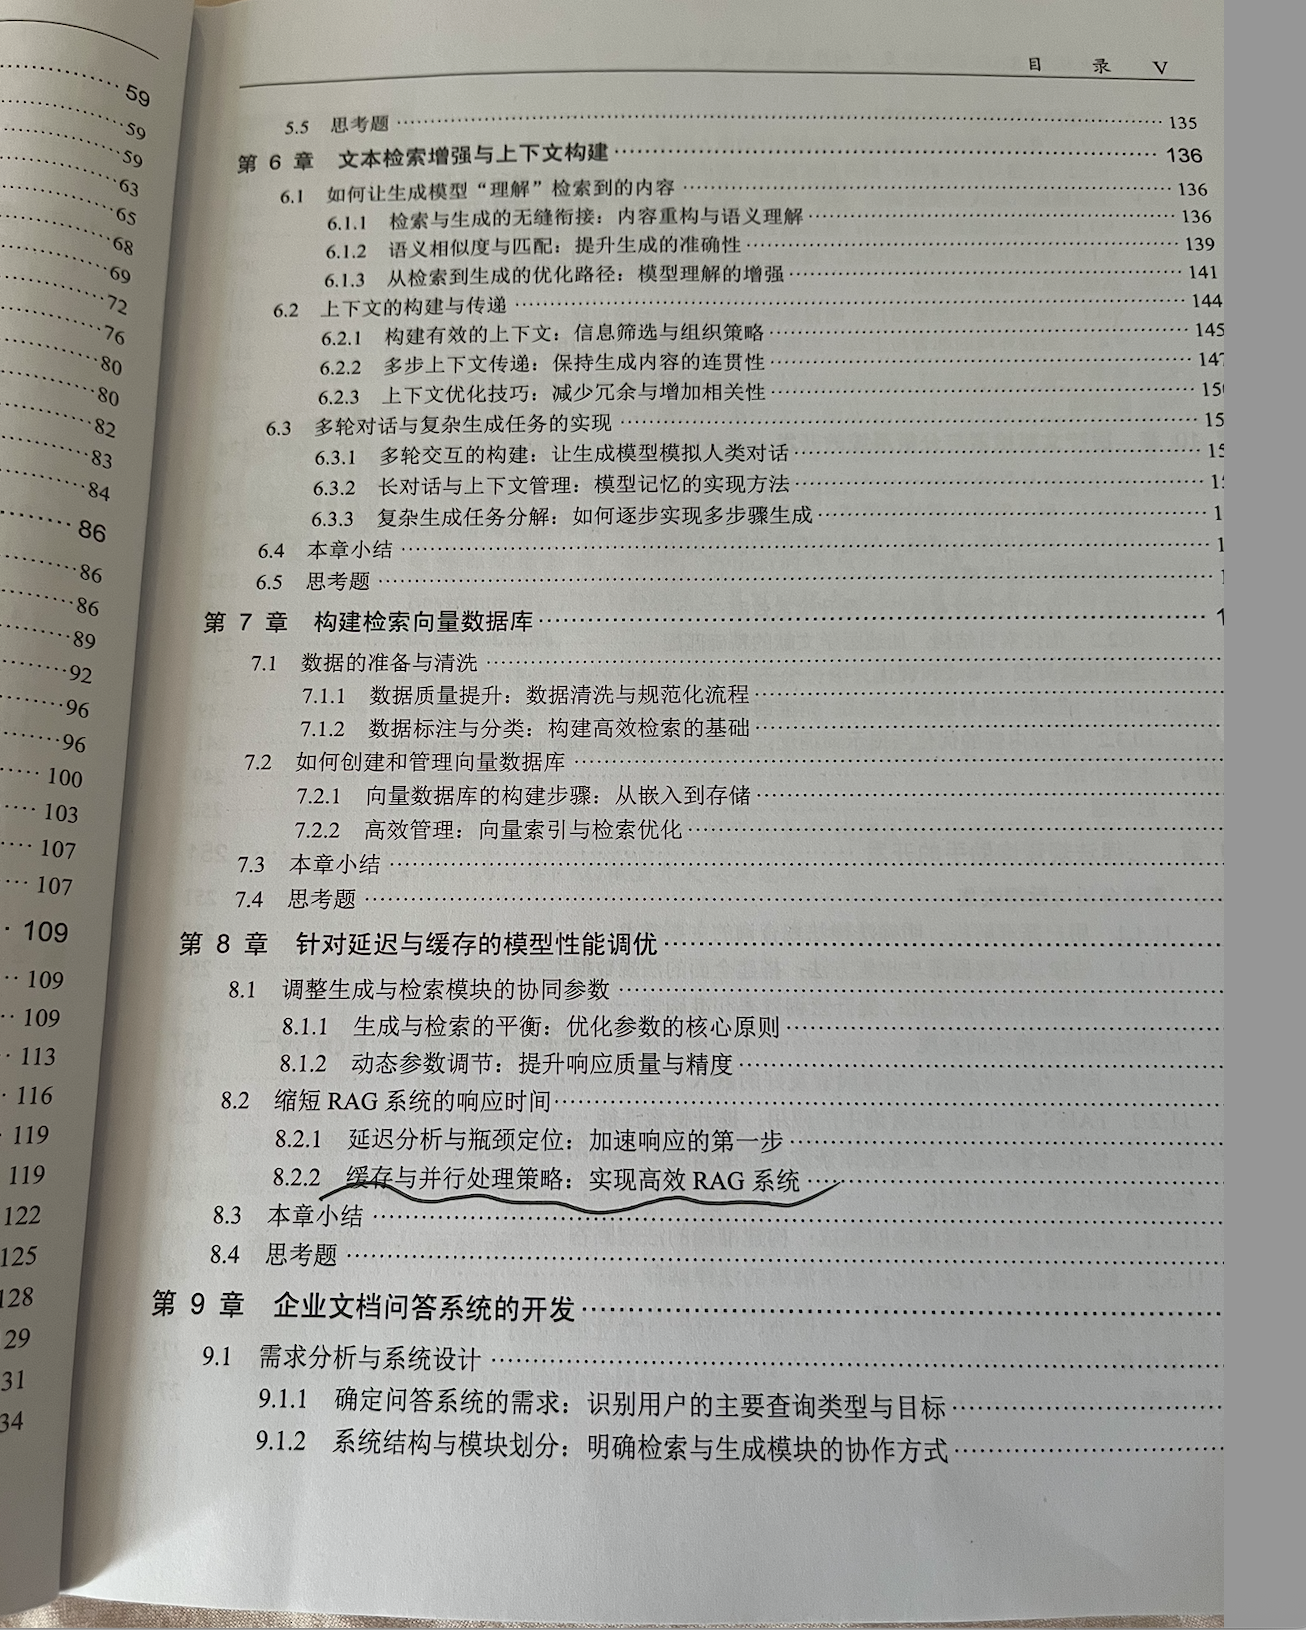 59
59
59
63
65
68
69
72
76
80
80
82
83
84
86
86
86
89
92
96
96
100
103
107
107
109
109
109
113
116
119
119
122
125
128
29
31
34
目 录 V
5.5 思考题 135
第 6 章 文本检索增强与上下文构建 136
6.1 如何让生成模型“理解”检索到的内容 136
6.1.1 检索与生成的无缝衔接：内容重构与语义理解 136
6.1.2 语义相似度与匹配：提升生成的准确性 139
6.1.3 从检索到生成的优化路径：模型理解的增强 141
6.2 上下文的构建与传递 144
6.2.1 构建有效的上下文：信息筛选与组织策略 145
6.2.2 多步上下文传递：保持生成内容的连贯性 147
6.2.3 上下文优化技巧：减少冗余与增加相关性 15
6.3 多轮对话与复杂生成任务的实现 15
6.3.1 多轮交互的构建：让生成模型模拟人类对话 15
6.3.2 长对话与上下文管理：模型记忆的实现方法 1
6.3.3 复杂生成任务分解：如何逐步实现多步骤生成 1
6.4 本章小结 1
6.5 思考题 1
第 7 章 构建检索向量数据库 1
7.1 数据的准备与清洗
7.1.1 数据质量提升：数据清洗与规范化流程
7.1.2 数据标注与分类：构建高效检索的基础
7.2 如何创建和管理向量数据库
7.2.1 向量数据库的构建步骤：从嵌入到存储
7.2.2 高效管理：向量索引与检索优化
7.3 本章小结
7.4 思考题
第 8 章 针对延迟与缓存的模型性能调优
8.1 调整生成与检索模块的协同参数
8.1.1 生成与检索的平衡：优化参数的核心原则
8.1.2 动态参数调节：提升响应质量与精度
8.2 缩短 RAG 系统的响应时间
8.2.1 延迟分析与瓶颈定位：加速响应的第一步
8.2.2 缓存与并行处理策略：实现高效 RAG 系统
8.3 本章小结
8.4 思考题
第 9 章 企业文档问答系统的开发
9.1 需求分析与系统设计
9.1.1 确定问答系统的需求：识别用户的主要查询类型与目标
9.1.2 系统结构与模块划分：明确检索与生成模块的协作方式